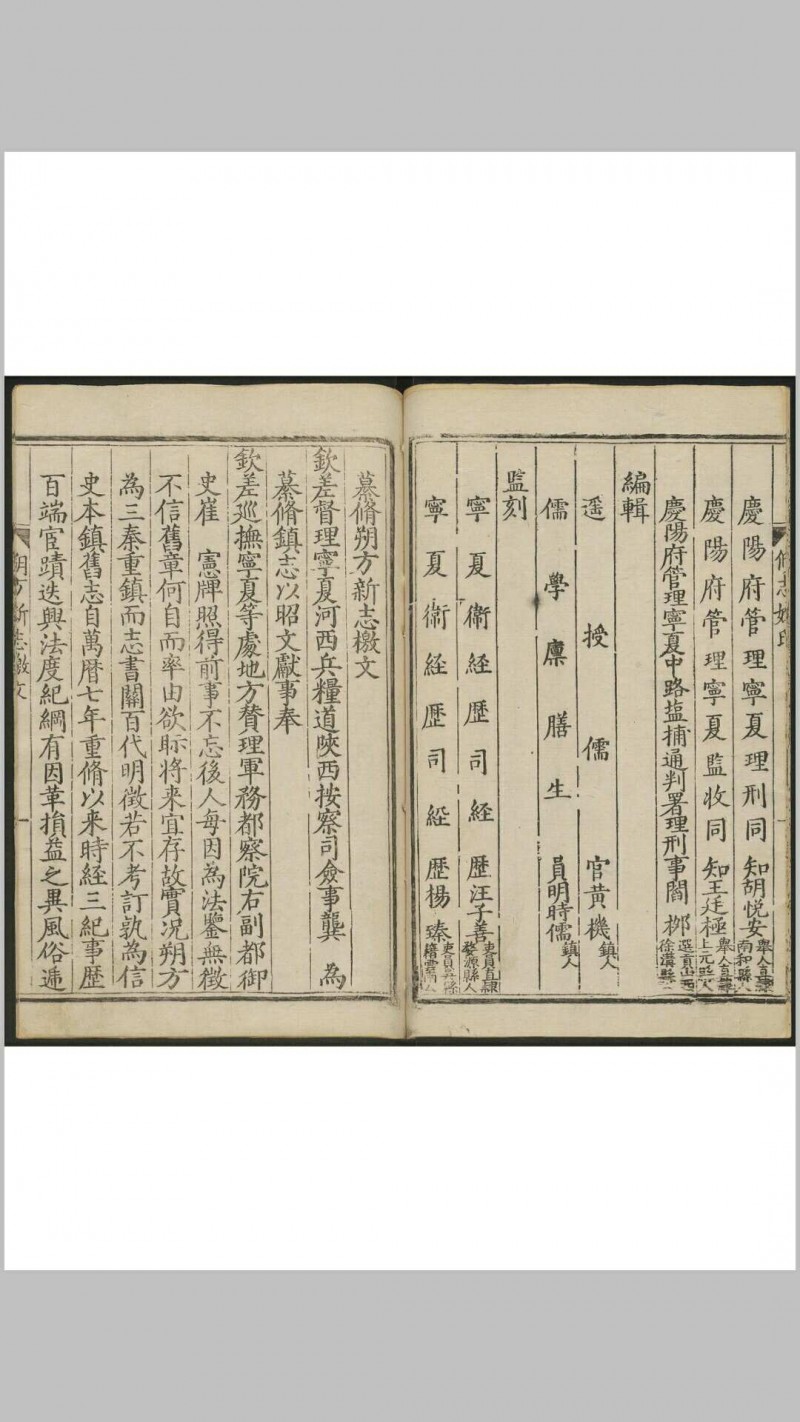 慶陽府管理寧夏理刑同知胡悅安舉人直隸南和縣人
慶陽府管理寧夏監收同知王廷極舉人直隸上元縣人
慶陽府管理寧夏中路塩捕通判署理刑事閻栁選貢山西徐溝縣人
編輯
遥授儒官黃機鎮人
儒學廪膳生員明時儒鎮人
監刻
寧夏衛経歷司経歷汪子善吏員直隸婺源縣人
寧夏衛経歷司経歷楊臻吏員
纂脩朔方新志檄文
欽差督理寧夏河西兵糧道陝西按察司僉事龔為
纂脩鎮志以昭文獻事奉
欽差巡撫寧夏等處地方賛理軍務都察院右副都御
史崔憲牌照得前事不忘後人每因為法鑒無徵
不信舊章何自而率由欲眎將来宜存故實况朔方
為三秦重鎮而志書關百代明徵若不考訂孰為信
史本鎮舊志自萬曆七年重脩以来時経三紀事歷
百端宦蹟迭興法度紀綱有因革損益之異風俗逓
朔方新志檄文
一